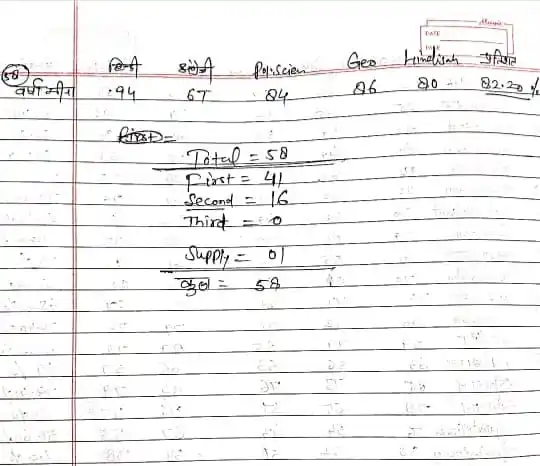 DATE
PAGE
हिन्दी अंग्रेजी Pol.Scien Geo Hindisah प्रतिशत
58 वर्षा मीना 94 67 84 86 80 82.20 %
First =
Total = 58
First = 41
Second = 16
Third = 0
Supply = 01
कुल = 58